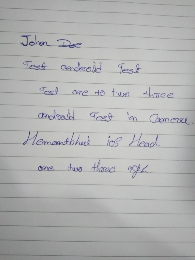 John Doe
Test android Test
Test one to two three
android Test in Camera
Hemantbhai ios Head
one two three